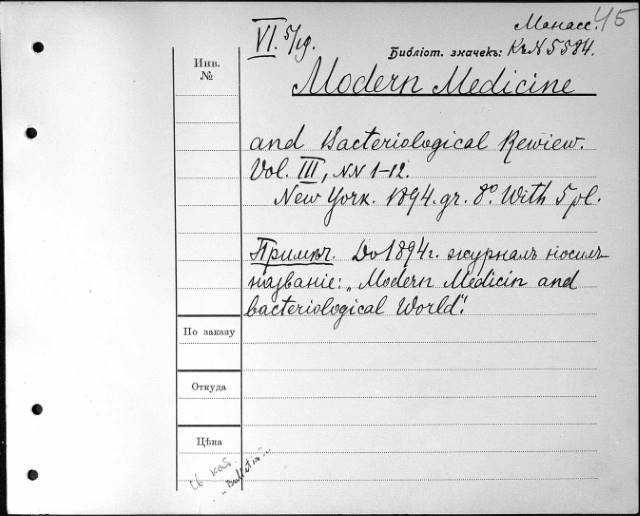 Манасс. 45
VI. 5/19.
Библіот. значекъ: К.№5584.
Инв.
№
Modern Medicine
and Bacteriological Rewiew.
Vol. III, NN 1-12.
New York. 1894. gr. 8º. With 5 pl.
Примѣч. До 1894 г. журналъ носилъ
названіе: „Modern Medicin and
bacteriological World".
По заказу
Откуда
Цѣна
каб.
„Bulletin"...